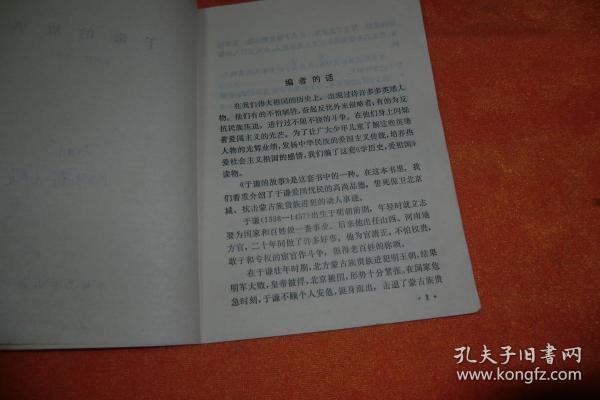 于谦的故事
编者的话
在我们伟大祖国的历史上，出现过许许多多英雄人
物。他们有的不怕牺牲，奋起反抗外来侵略者；有的为反
抗民族压迫，进行过不屈不挠的斗争。在他们身上闪烁
着爱国主义的光芒。为了让广大少年儿童了解这些英雄
人物的光辉业绩，发扬中华民族的爱国主义传统，培养热
爱社会主义祖国的感情，我们编了这套《学历史，爱祖国》
读物。
《于谦的故事》是这套书中的一种。在这本书里，我
们着重介绍了于谦爱国忧民的高尚品德，誓死保卫北京
城、抗击蒙古族贵族进犯的动人事迹。
于谦(1398—1457)出生于明朝前期，年轻时就立志
要为国家和百姓做一番事业。后来他出任山西、河南地
方官，二十年间做了许多好事。他为官清正，不怕权贵，
敢于和专权的宦官作斗争，很得老百姓的称颂。
在于谦壮年时期，北方蒙古族贵族进犯明王朝，结果
明军大败，皇帝被俘，北京被围，形势十分紧张。在国家危
急时刻，于谦不顾个人安危，挺身而出，击退了蒙古族贵
· 1 ·
孔夫子旧书网
www.kongfz.com